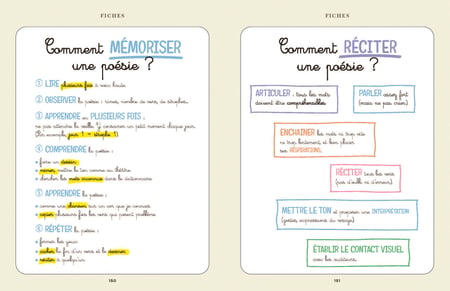 FICHES
Comment MÉMORISER
une poésie ?
① LIRE plusieurs fois à voix haute.
② OBSERVER la poésie : rimes, nombre de vers, de strophes...
③ APPRENDRE en PLUSIEURS FOIS :
ne pas attendre la veille. S'y consacrer un petit moment chaque jour.
(Par exemple, jour 1 = strophe 1)
④ COMPRENDRE la poésie :
• faire un dessin
• mimer, mettre le ton comme au théâtre
• chercher les mots inconnus dans le dictionnaire
⑤ APPRENDRE la poésie :
• comme une chanson sur un air que je connais
• copier plusieurs fois les vers qui posent problème
⑥ RÉPÉTER la poésie :
• fermer les yeux
• cacher la fin d'un vers et le deviner
• réciter à quelqu'un
150
FICHES
Comment RÉCITER
une poésie ?
ARTICULER : tous les mots
doivent être compréhensibles
PARLER assez fort
(mais ne pas crier)
ENCHAINER les mots ni trop vite
ni trop lentement et bien placer
ses RESPIRATIONS.
RÉCITER tous les vers
(pas d'oubli ni d'erreur)
METTRE LE TON et proposer une INTERPRÉTATION
(gestes, expressions du visage)
ÉTABLIR LE CONTACT VISUEL
avec les auditeurs.
151